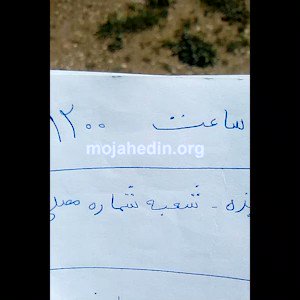 ساعت ۱۲۰۰
mojahedin.org
شعبه شماره